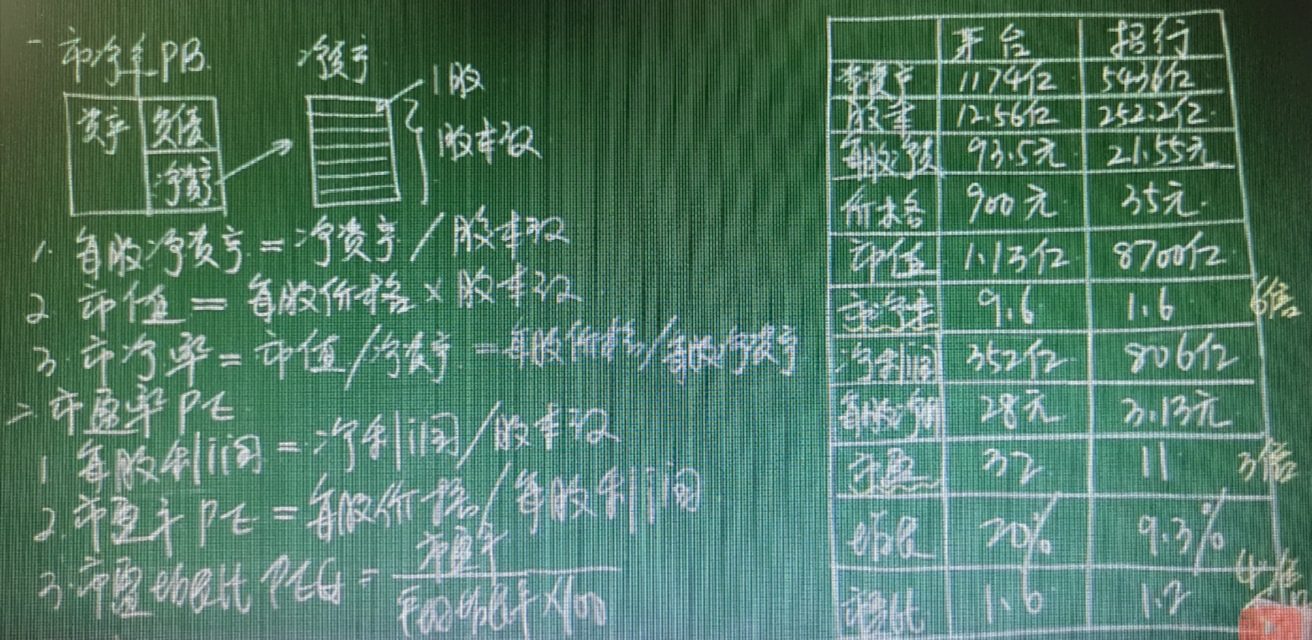 一 市净率PB.
净资产
1股
股本数
资产 负债
净资产
1. 每股净资产 = 净资产 / 股本数
2 市值 = 每股价格 × 股本数
3. 市净率 = 市值/净资产 = 每股价格/每股净资产
二市盈率PE
1 每股利润 = 净利润/股本数
2.市盈率PE = 每股价格/每股利润
3.市盈增长比 PEG = 市盈率
平均增长率×100
茅台 招行
净资产 1174亿 5436亿
股本 12.56亿 252.2亿.
每股净资 93.5元 21.55元
价格 900元 35元.
市值 1.13亿 8700亿
市净率 9.6 1.6 6倍
净利润 352亿 806亿
每股净利 28元 3.13元
市盈 32 11 3倍
增长 20% 9.3%
1.6 1.2